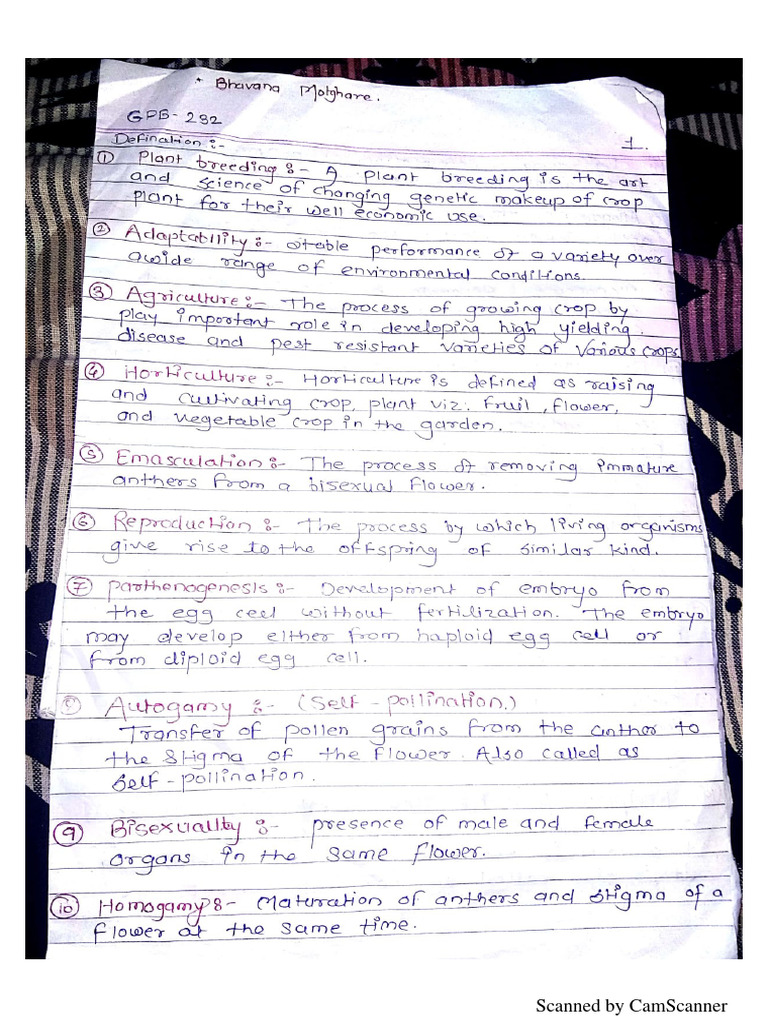 * Bhavana Motghare.
GPB-232
1.
Defination :-
① Plant breeding :- A plant breeding is the art
and science of changing genetic makeup of crop
plant for their well economic use.
② Adaptability :- stable performance of a variety over
a wide range of environmental conditions.
③ Agriculture :- The process of growing crop by
play important role in developing high yielding
disease and pest resistant varieties of various crops
④ Horticulture :- Horticulture is defined as raising
and cultivating crop, plant viz. fruit, flower,
and vegetable crop in the garden.
⑤ Emasculation :- The process of removing immature
anthers from a bisexual flower.
⑥ Reproduction :- The process by which living organisms
give rise to the offspring of similar kind.
⑦ Parthenogenesis :- Development of embryo from
the egg cell without fertilization. The embryo
may develop either from haploid egg cell or
from diploid egg cell.
⑧ Autogamy :- (Self-pollination.)
Transfer of pollen grains from the anther to
the stigma of the flower. Also called as
self-pollination.
⑨ Bisexuality :- presence of male and female
organs in the same flower.
⑩ Homogamy :- Maturation of anthers and stigma of a
flower at the same time.
Scanned by CamScanner